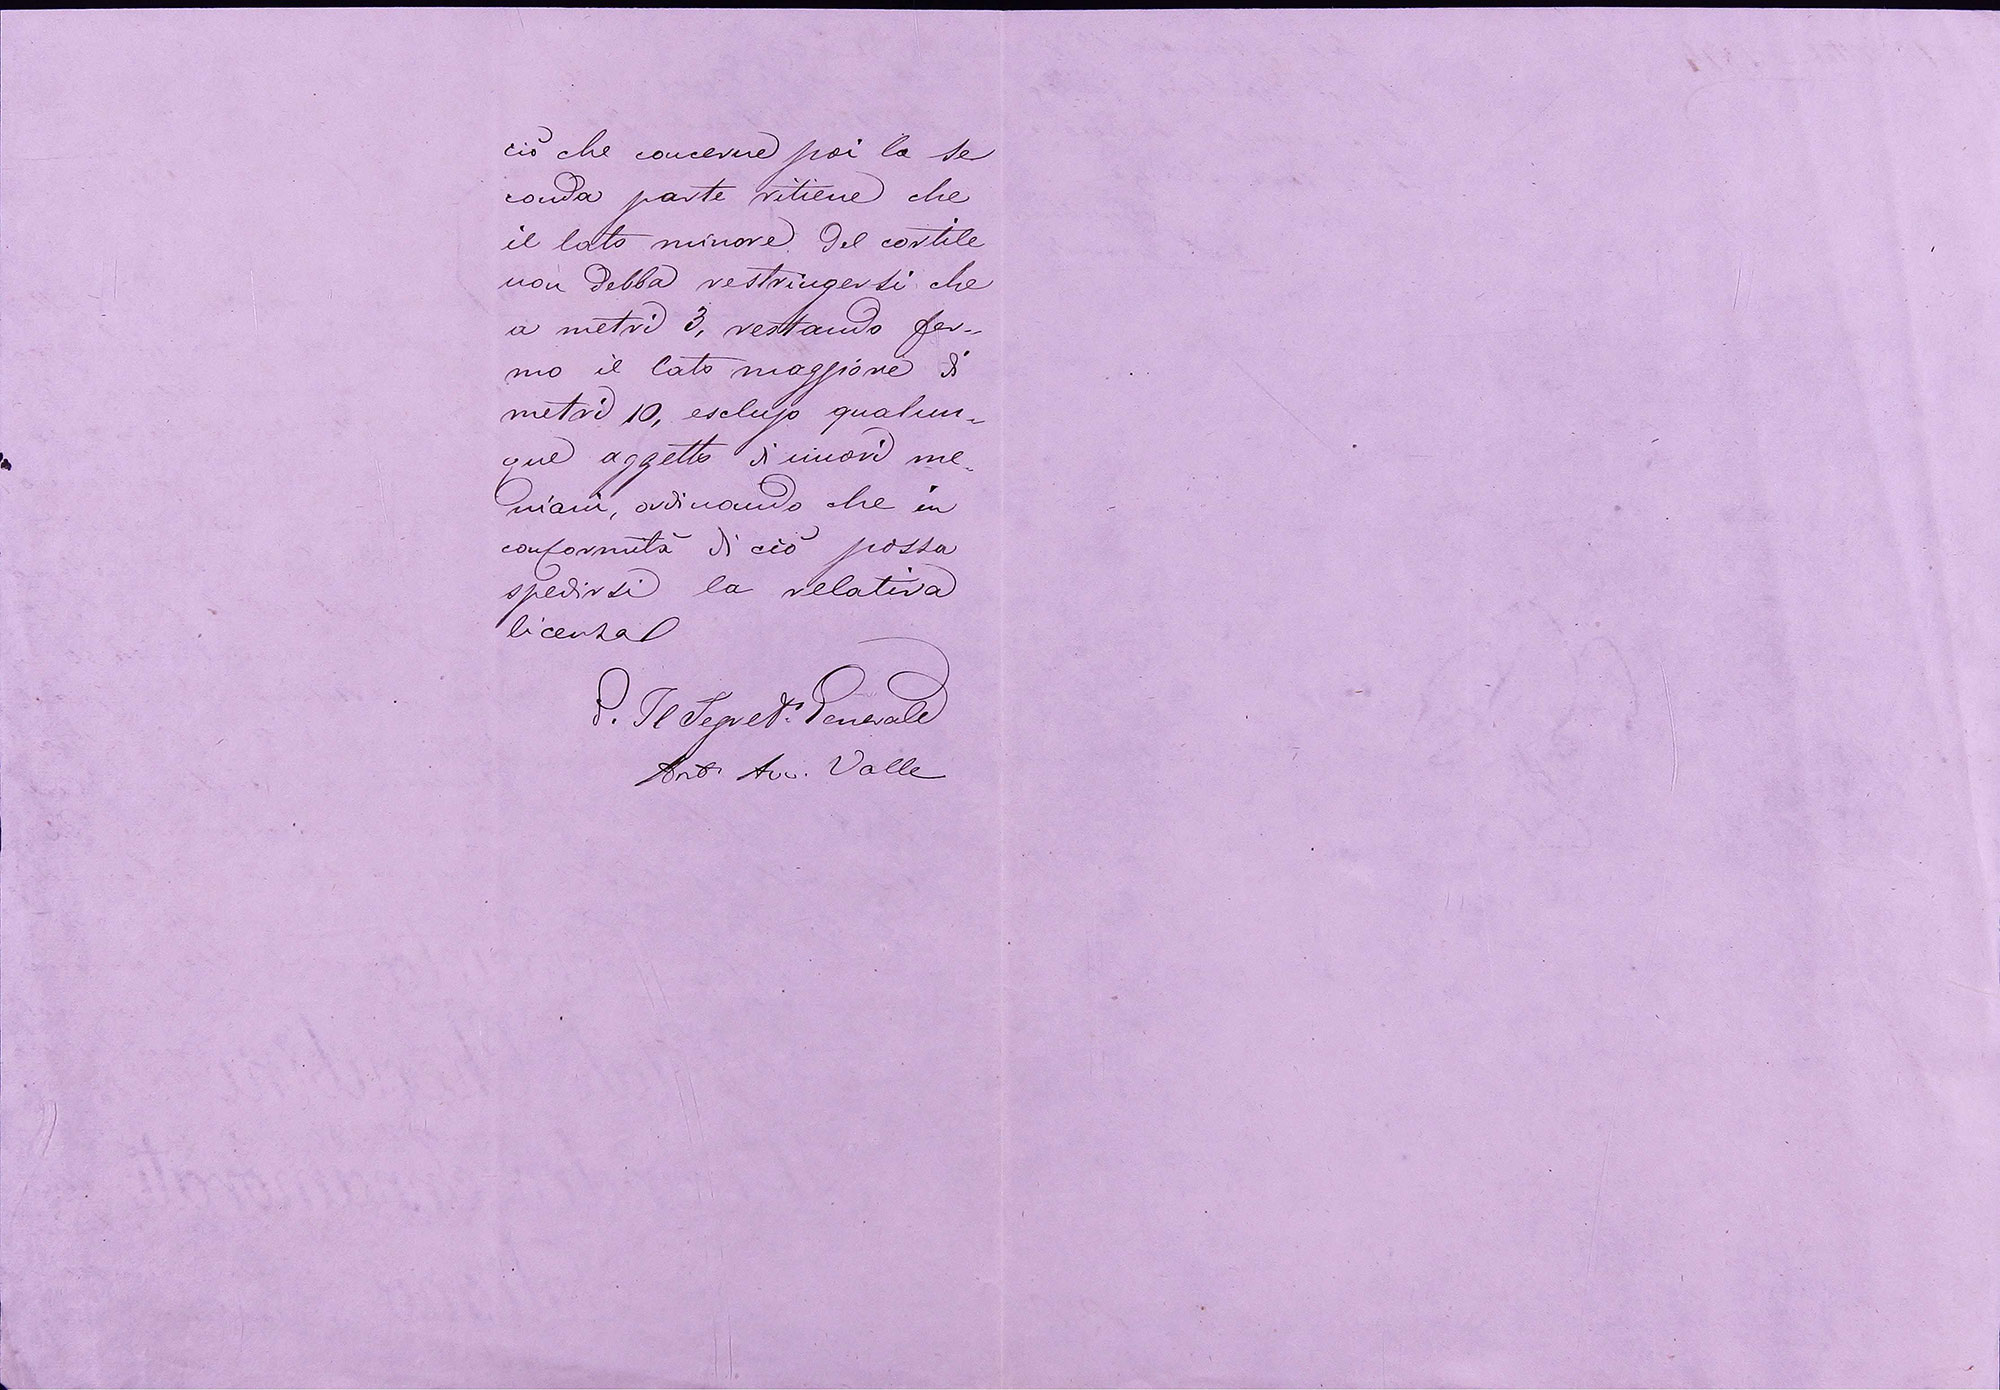 ciò che concerne poi la se
conda parte ritiene che
il lato minore del cortile
non debba restringersi che
a metri 3, restando fer-
mo il lato maggiore di
metri 10, escluso qualun-
que aggetto di nuovi me-
niani, ordinando che in
conformità di ciò possa
spedirsi la relativa
licenza
P. Il Segret.º Generale
Avv. Valle